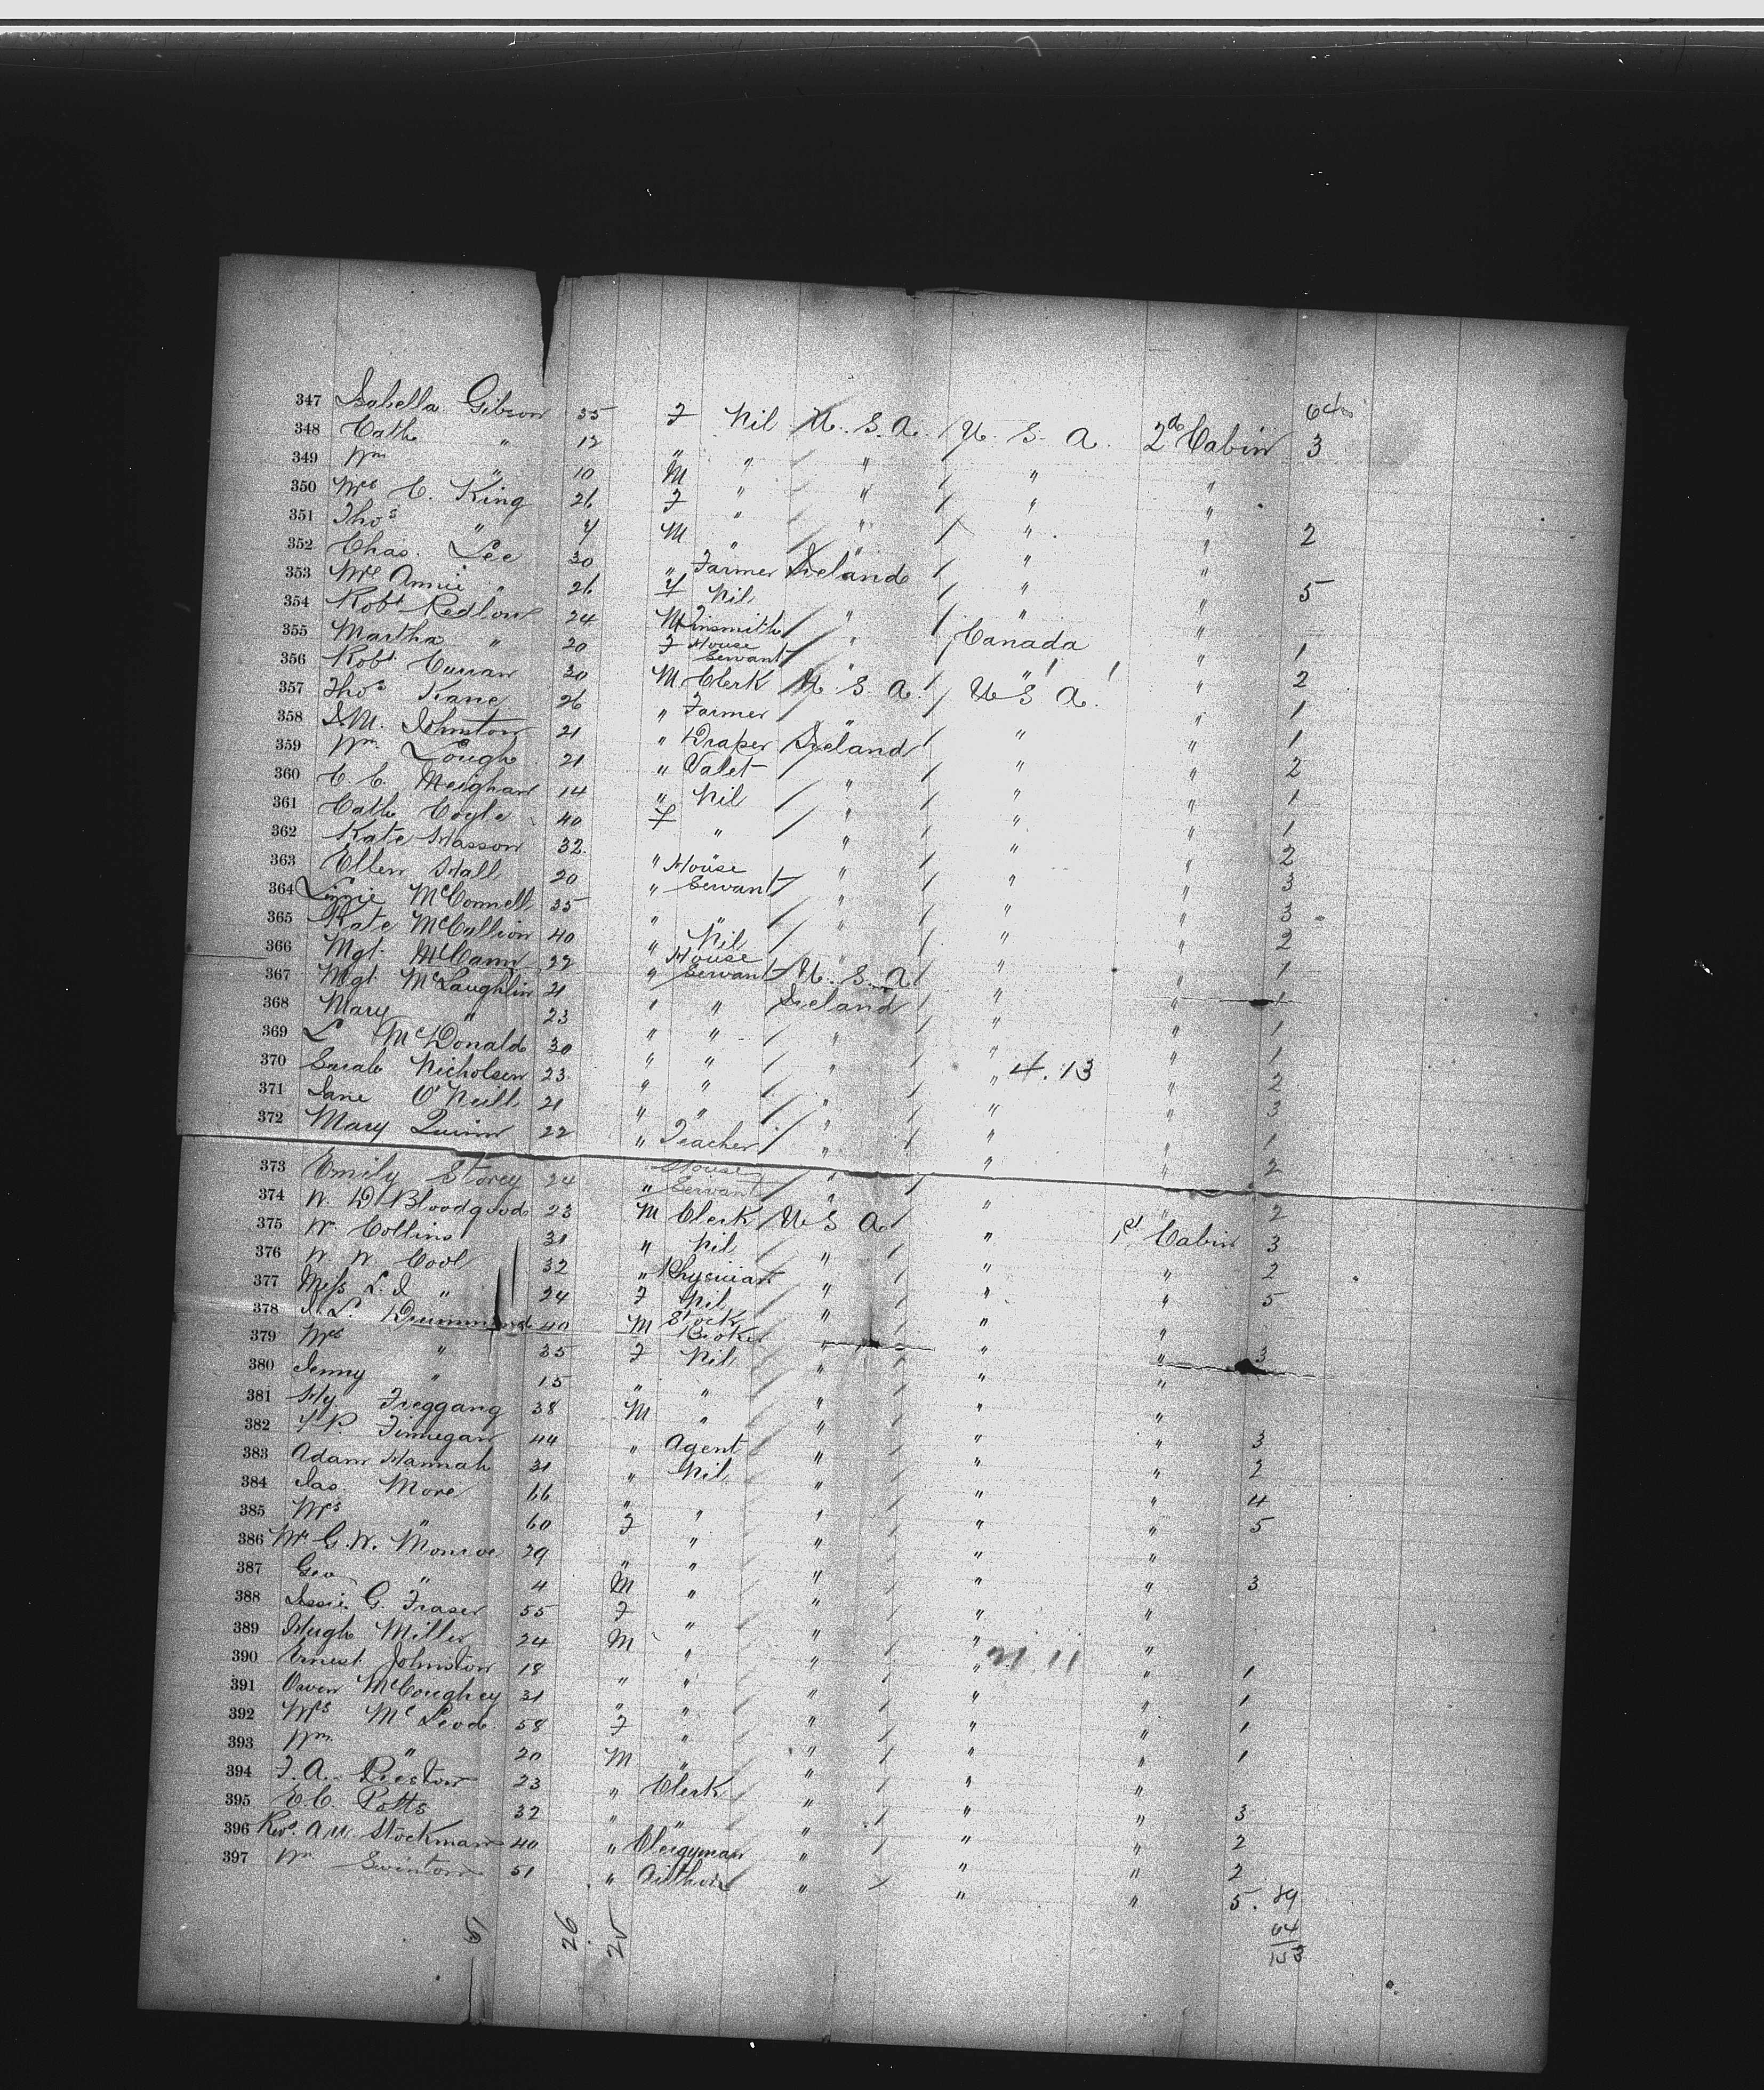 64
347 Isabella Gibson 35 F Nil U.S.A. U.S.A. 2d Cabin 3
348 Cath " 12 " " " " "
349 Wm " 10 M " " " "
350 Mrs C. King 26 F " " " " 2
351 Thos " 4 M " " " "
352 Chas. Lee 30 " Farmer Ireland " " 5
353 Mrs Annie " 26 F Nil " " "
354 Robt Redlow 24 M Tinsmith " Canada " 1
355 Martha " 20 F House Servant " " " 2
356 Robt Curran 30 M Clerk U.S.A. U S A. " 1
357 Thos Kane 26 " Farmer " " " 1
358 J.M. Johnston 21 " Draper Ireland " " 2
359 Wm Lough 21 " Valet " " " 1
360 C. C. Meighan 14 " Nil " " " 1
361 Cath Coyle 40 F " " " " 2
362 Kate Hasson 32 " House Servant " " " 3
363 Ellen Hall 20 " " " " 3
364 Lizzie McConnell 35 " " " " " 2
365 Kate McCallion 40 " Nil " " " 1
366 Mgt. McCann 22 " House Servant U.S.A. " " 1
367 Mgt. McLaughlin 21 " " Ireland " " 1
368 Mary " 23 " " " " " 1
369 L McDonald 30 " " " " " 2
370 Sarah Nicholson 23 " " " " 4.13 " 3
371 Jane O'Neill 21 " " " " " 1
372 Mary Quinn 22 " Teacher " " " 2
373 Emily Storey 24 " House Servant " " " 2
374 W. D. Bloodgood 23 M Clerk U S A " 1st Cabin 3
375 W. Collins 31 " Nil " " " 2
376 W. W. Cool 32 " Physician " " " 5
377 Miss L. I. " 24 F Nil " " "
378 J. L. Drummond 40 M Stock Broker " " " 3
379 Mrs " 35 F Nil " " "
380 Jenny " 15 " " " " "
381 Hy Freggang 38 M " " " " 3
382 F P. Finnegan 44 " Agent " " " 2
383 Adam Hannah 31 " Nil " " " 4
384 Jas. More 66 " " " " " 5
385 Mrs " 60 F " " " "
386 Mrs G. W. Monroe 29 " " " " " 3
387 Geo " 4 M " " " "
388 Jessie G. Fraser 55 F " " " "
389 Hugh Miller 24 M " " " " 1
390 Ernest Johnston 18 " " " " " 1
391 Owen McCoughey 31 " " " " " 1
392 Mrs McLeod 58 F " " " " 1
393 Wm. " 20 M " " " "
394 F. A. Preston 23 " Clerk " " " 3
395 E. C. Potts 32 " " " " " 2
396 Revd. A M Stockman 40 " Clergyman " " " 2
397 Wm Swinton 51 " Author " " " 5. 89
26 25 64
153